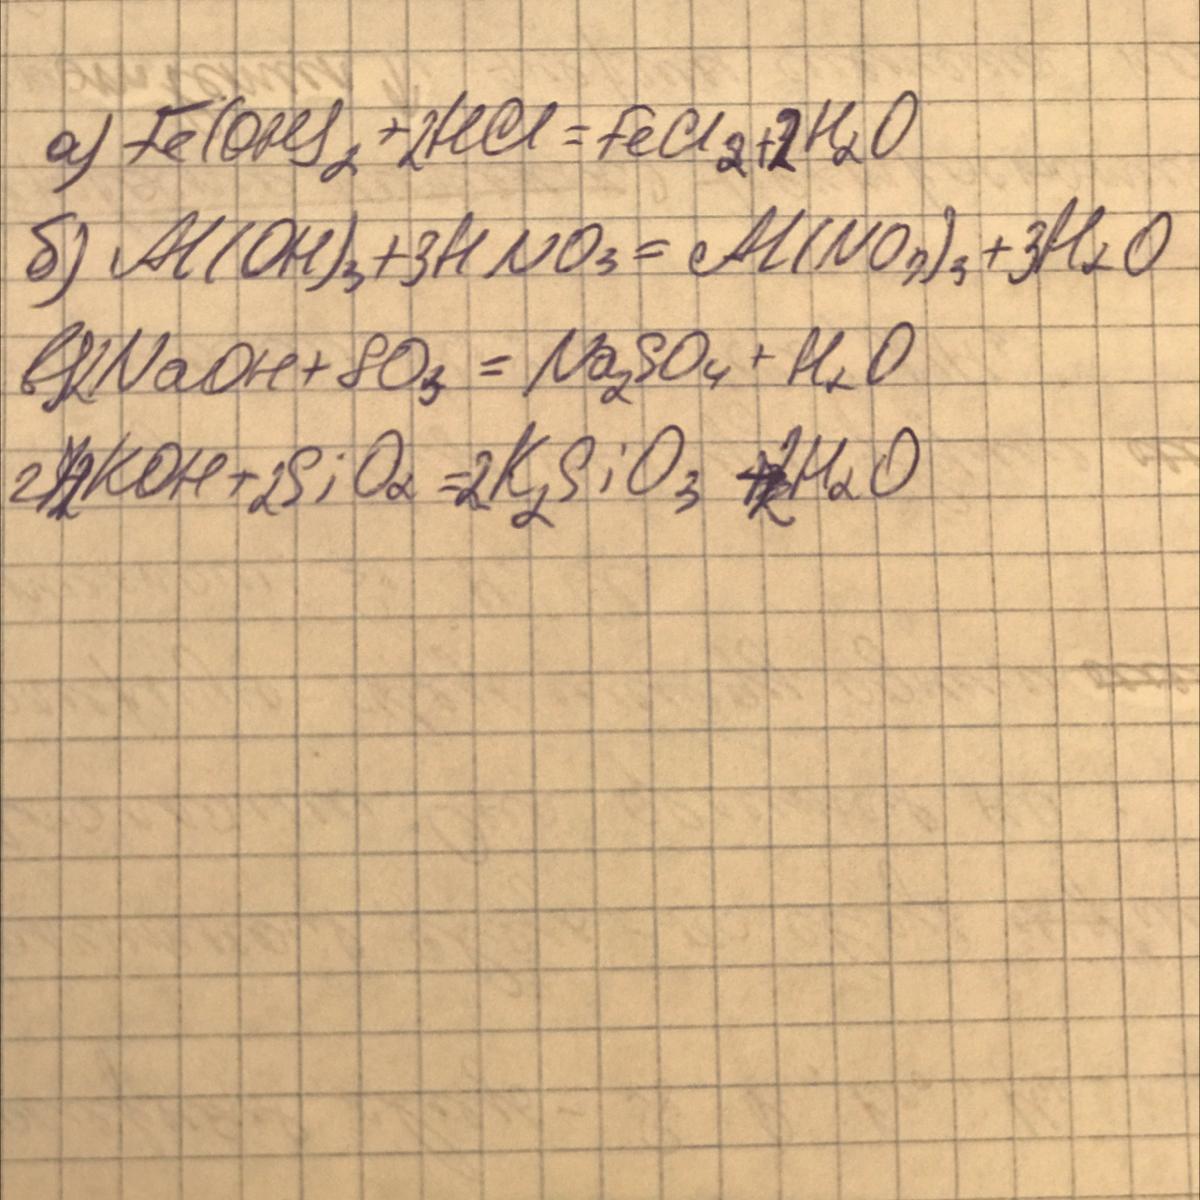 а) Fe(OH)2 +2HCl = FeCl2+2H2O
б) Al(OH)3+3HNO3 = Al(NO3)3+3H2O
в)2NaOH + SO3 = Na2SO4 + H2O
г) KOH+2SiO2 =2K2SiO3 +2H2O